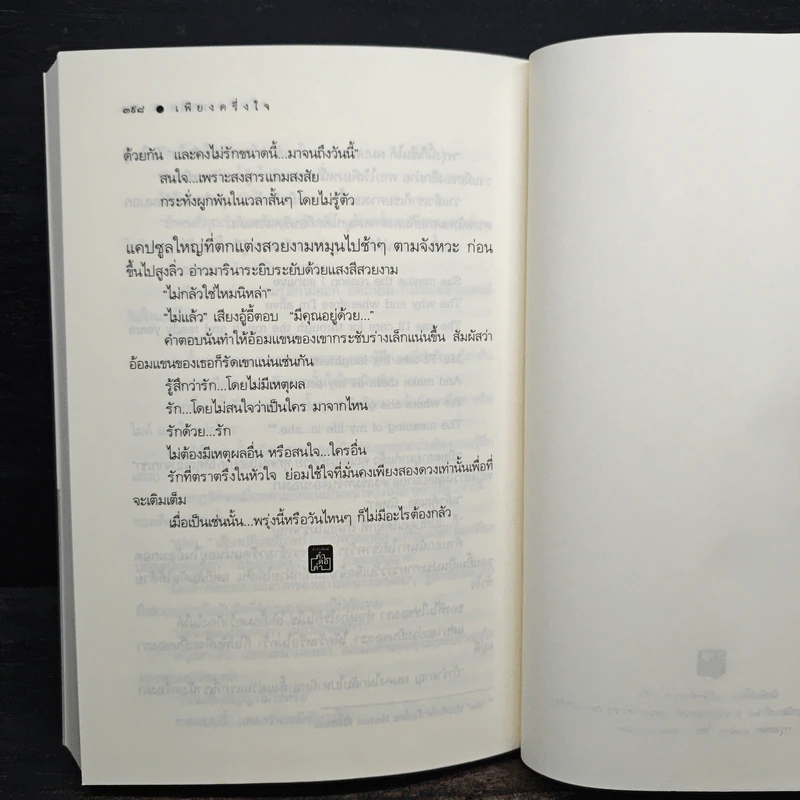 ๓๙๘ ● เพียงครึ่งใจ
ด้วยกัน และคงไม่รักขนาดนี้...มาจนถึงวันนี้”
สนใจ...เพราะสงสารแกมสงสัย
กระทั่งผูกพันในเวลาสั้นๆ โดยไม่รู้ตัว
แคปซูลใหญ่ที่ตกแต่งสวยงามหมุนไปช้าๆ ตามจังหวะ ก่อน
ขึ้นไปสูงลิ่ว อ่าวมารินาระยิบระยับด้วยแสงสีสวยงาม
“ไม่กลัวใช่ไหมนิหล่า”
“ไม่แล้ว” เสียงอู้อี้ตอบ “มีคุณอยู่ด้วย...”
คำตอบนั้นทำให้อ้อมแขนของเขากระชับร่างเล็กแน่นขึ้น สัมผัสว่า
อ้อมแขนของเธอก็รัดเขาแน่นเช่นกัน
รู้สึกว่ารัก...โดยไม่มีเหตุผล
รัก...โดยไม่สนใจว่าเป็นใคร มาจากไหน
รักด้วย...รัก
ไม่ต้องมีเหตุผลอื่น หรือสนใจ...ใครอื่น
รักที่ตราตรึงในหัวใจ ย่อมใช้ใจที่มั่นคงเพียงสองดวงเท่านั้นเพื่อที่
จะเติมเต็ม
เมื่อเป็นเช่นนั้น...พรุ่งนี้หรือวันไหนๆ ก็ไม่มีอะไรต้องกลัว